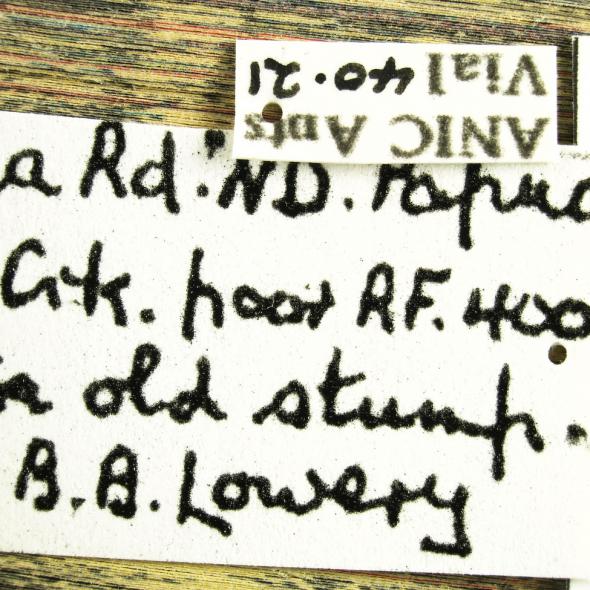 ANIC Ants
Vial 40.21
a Rd. ND. Papua
Crk. poor RF. 400
old stump.
B.B. Lowery